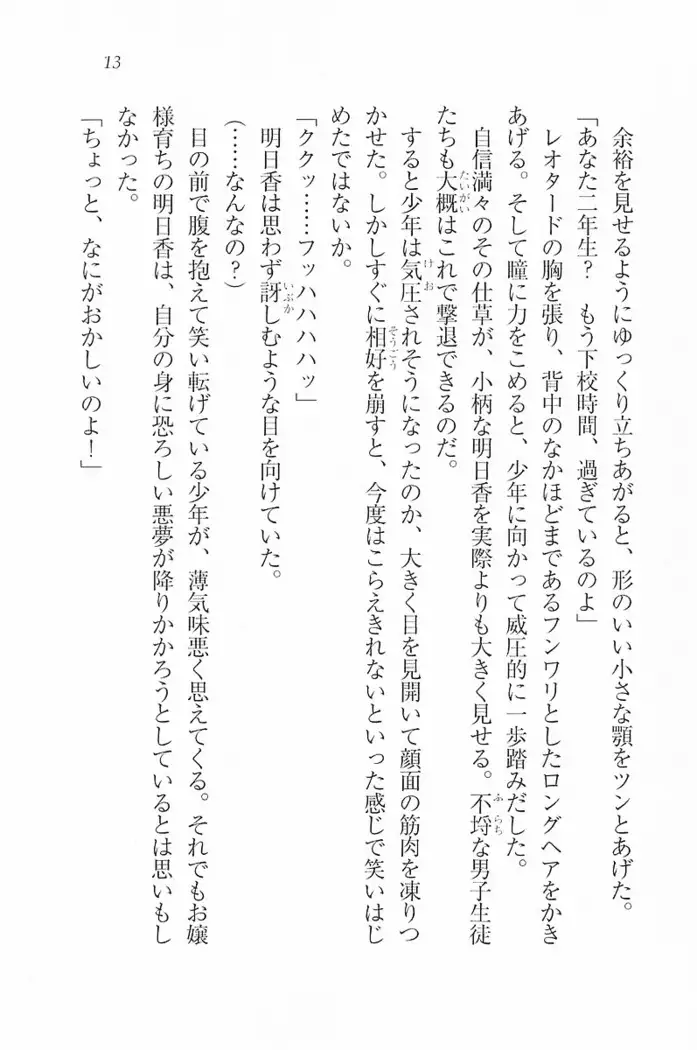 13
余裕を見せるようにゆっくり立ちあがると、形のいい小さな顎をツンとあげた。
「あなた二年生？　もう下校時間、過ぎているのよ」
レオタードの胸を張り、背中のなかほどまであるフンワリとしたロングヘアをかき
あげる。そして瞳に力をこめると、少年に向かって威圧的に一歩踏みだした。
自信満々のその仕草が、小柄な明日香を実際よりも大きく見せる。不埒な男子生徒
ふらち
たちも大概はこれで撃退できるのだ。
たいがい
すると少年は気圧されそうになったのか、大きく目を見開いて顔面の筋肉を凍りつ
けお
かせた。しかしすぐに相好を崩すと、今度はこらえきれないといった感じで笑いはじ
そうごう
めたではないか。
「ククッ……フッハハハハッ」
明日香は思わず訝しむような目を向けていた。
いぶか
（……なんなの？）
目の前で腹を抱えて笑い転げている少年が、薄気味悪く思えてくる。それでもお嬢
様育ちの明日香は、自分の身に恐ろしい悪夢が降りかかろうとしているとは思いもし
なかった。
「ちょっと、なにがおかしいのよ！」